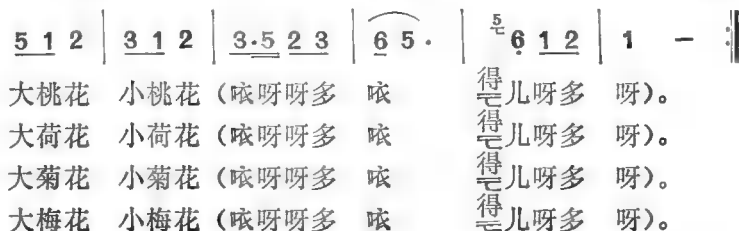 5 1 2 | 3 1 2 | 3·5 2 3 | 6 5 · | 5 6 1 2 | 1 － :‖
大桃花 小桃花（咴呀呀多 咴 得儿呀多 呀）。
大荷花 小荷花（咴呀呀多 咴 得儿呀多 呀）。
大菊花 小菊花（咴呀呀多 咴 得儿呀多 呀）。
大梅花 小梅花（咴呀呀多 咴 得儿呀多 呀）。